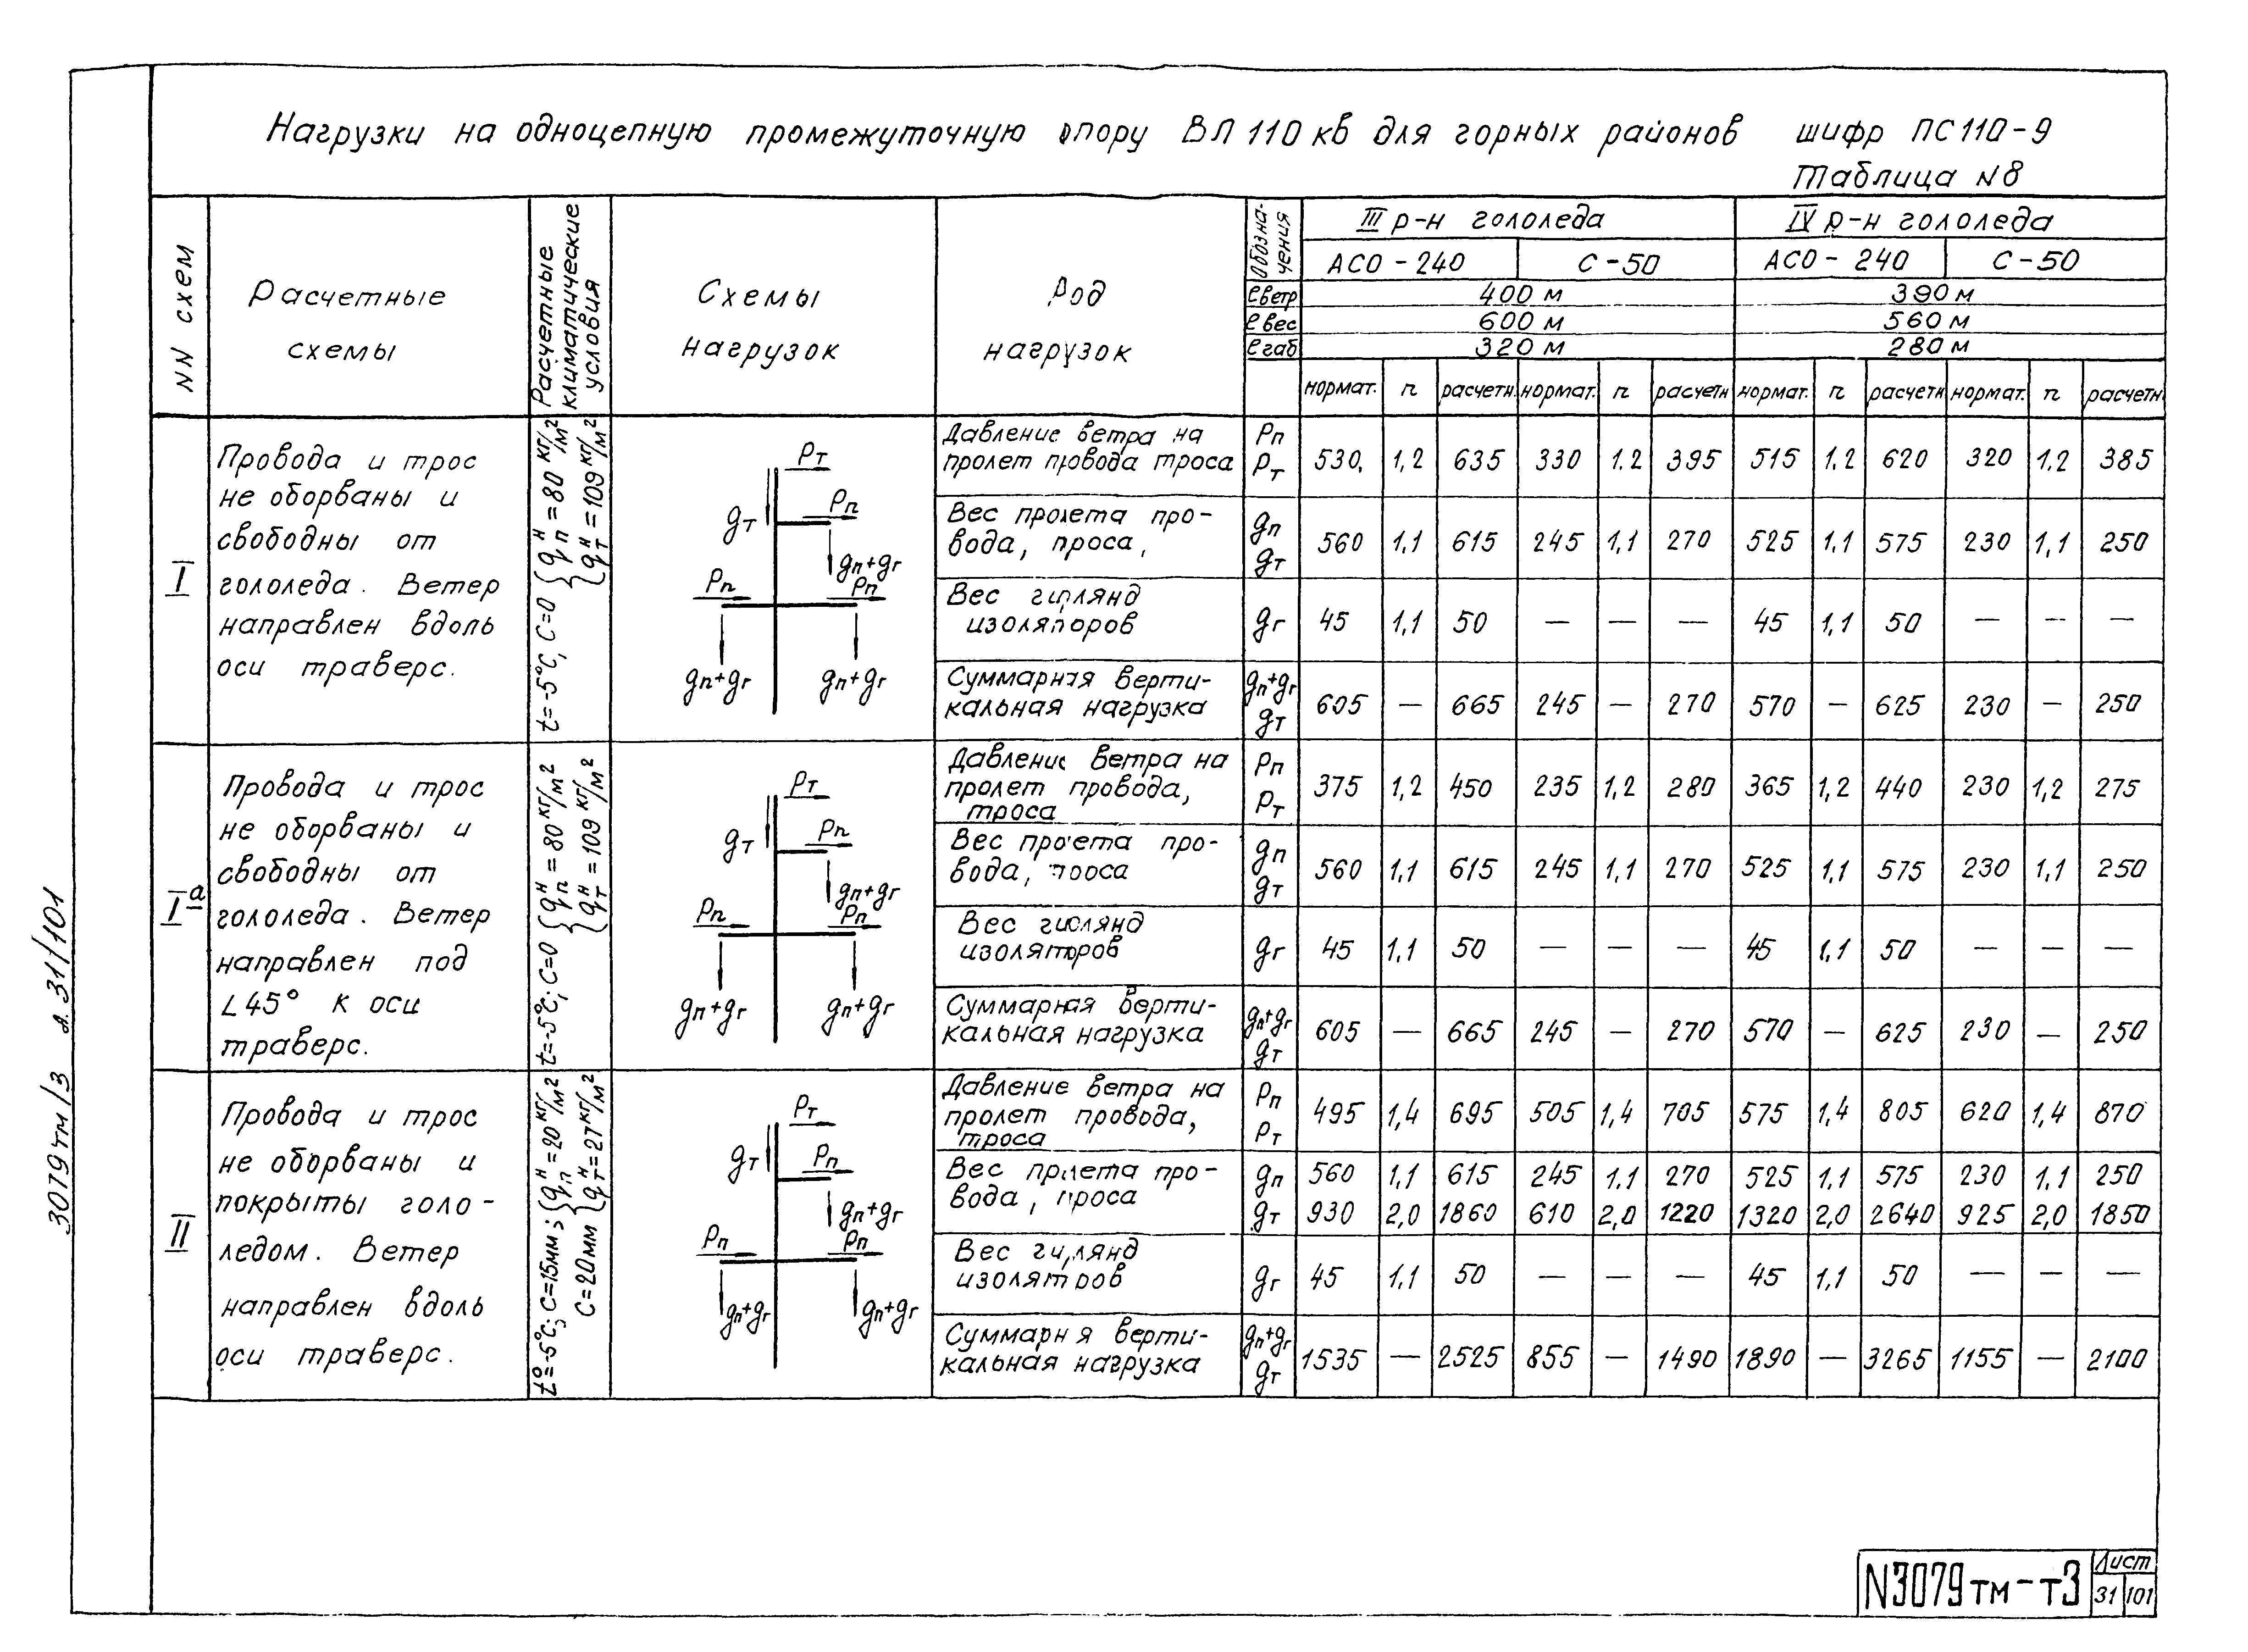 Нагрузки на одноцепную промежуточную опору ВЛ 110 кв для горных районов шифр ПС 110-9
Таблица N8
NN схем
Расчетные
схемы
Расчетные
климатические
условия
Схемы
нагрузок
Род
нагрузок
Обозна-
чения
III р-н гололеда
IV р-н гололеда
АСО-240 С-50 АСО-240 С-50
ℓветр 400 м 390 м
ℓвес 600 м 560 м
ℓгаб 320 м 280 м
нормат. n расчетн. нормат. n расчетн нормат. n расчетн нормат. n расчетн.
I
Провода и трос
не оборваны и
свободны от
гололеда. Ветер
направлен вдоль
оси траверс.
t=-5°C, C=0 { qпᴴ = 80 кг/м²
{ qтᴴ = 109 кг/м²
Pт
gт
Pп
gп+gг
Pп
Pп
gп+gг
gп+gг
Давление ветра на
пролет провода троса
Pп
Pт
530, 1,2 635 330 1.2 395 515 1,2 620 320 1.2 385
Вес пролета про-
вода, троса,
gп
gт
560 1,1 615 245 1,1 270 525 1,1 575 230 1,1 250
Вес гирлянд
изоляторов
gг
45 1,1 50 — — — 45 1,1 50 — — —
Суммарная верти-
кальная нагрузка
gп+gг
gт
605 — 665 245 — 270 570 — 625 230 — 250
Iа
Провода и трос
не оборваны и
свободны от
гололеда. Ветер
направлен под
∠45° к оси
траверс.
t=-5°C; C=0 { qпᴴ = 80 кг/м²
{ qтᴴ = 109 кг/м²
Pт
gт
Pп
gп+gг
Pп
Pп
gп+gг
gп+gг
Давление ветра на
пролет провода,
троса
Pп
Pт
375 1,2 450 235 1,2 280 365 1,2 440 230 1,2 275
Вес пролета про-
вода, троса
gп
gт
560 1,1 615 245 1,1 270 525 1,1 575 230 1,1 250
Вес гирлянд
изоляторов
gг
45 1,1 50 — — — 45 1,1 50 — — —
Суммарная верти-
кальная нагрузка
gп+gг
gт
605 — 665 245 — 270 570 — 625 230 — 250
II
Провода и трос
не оборваны и
покрыты голо-
ледом. Ветер
направлен вдоль
оси траверс.
t°=-5°C; C=15мм; { qпᴴ = 20 кг/м²
C=20мм { qтᴴ = 27 кг/м²
Pт
gт
Pп
gп+gг
Pп
Pп
gп+gг
gп+gг
Давление ветра на
пролет провода,
троса
Pп
Pт
495 1,4 695 505 1,4 705 575 1,4 805 620 1,4 870
Вес пролета про-
вода, троса
gп 560 1,1 615 245 1.1 270 525 1,1 575 230 1.1 250
gт 930 2,0 1860 610 2,0 1220 1320 2,0 2640 925 2,0 1850
Вес гирлянд
изоляторов
gг
45 1,1 50 — — — 45 1,1 50 — — —
Суммарная верти-
кальная нагрузка
gп+gг
gт
1535 — 2525 855 — 1490 1890 — 3265 1155 — 2100
3079тм/3 л. 31/101
N3079тм-т3
Лист
31 101